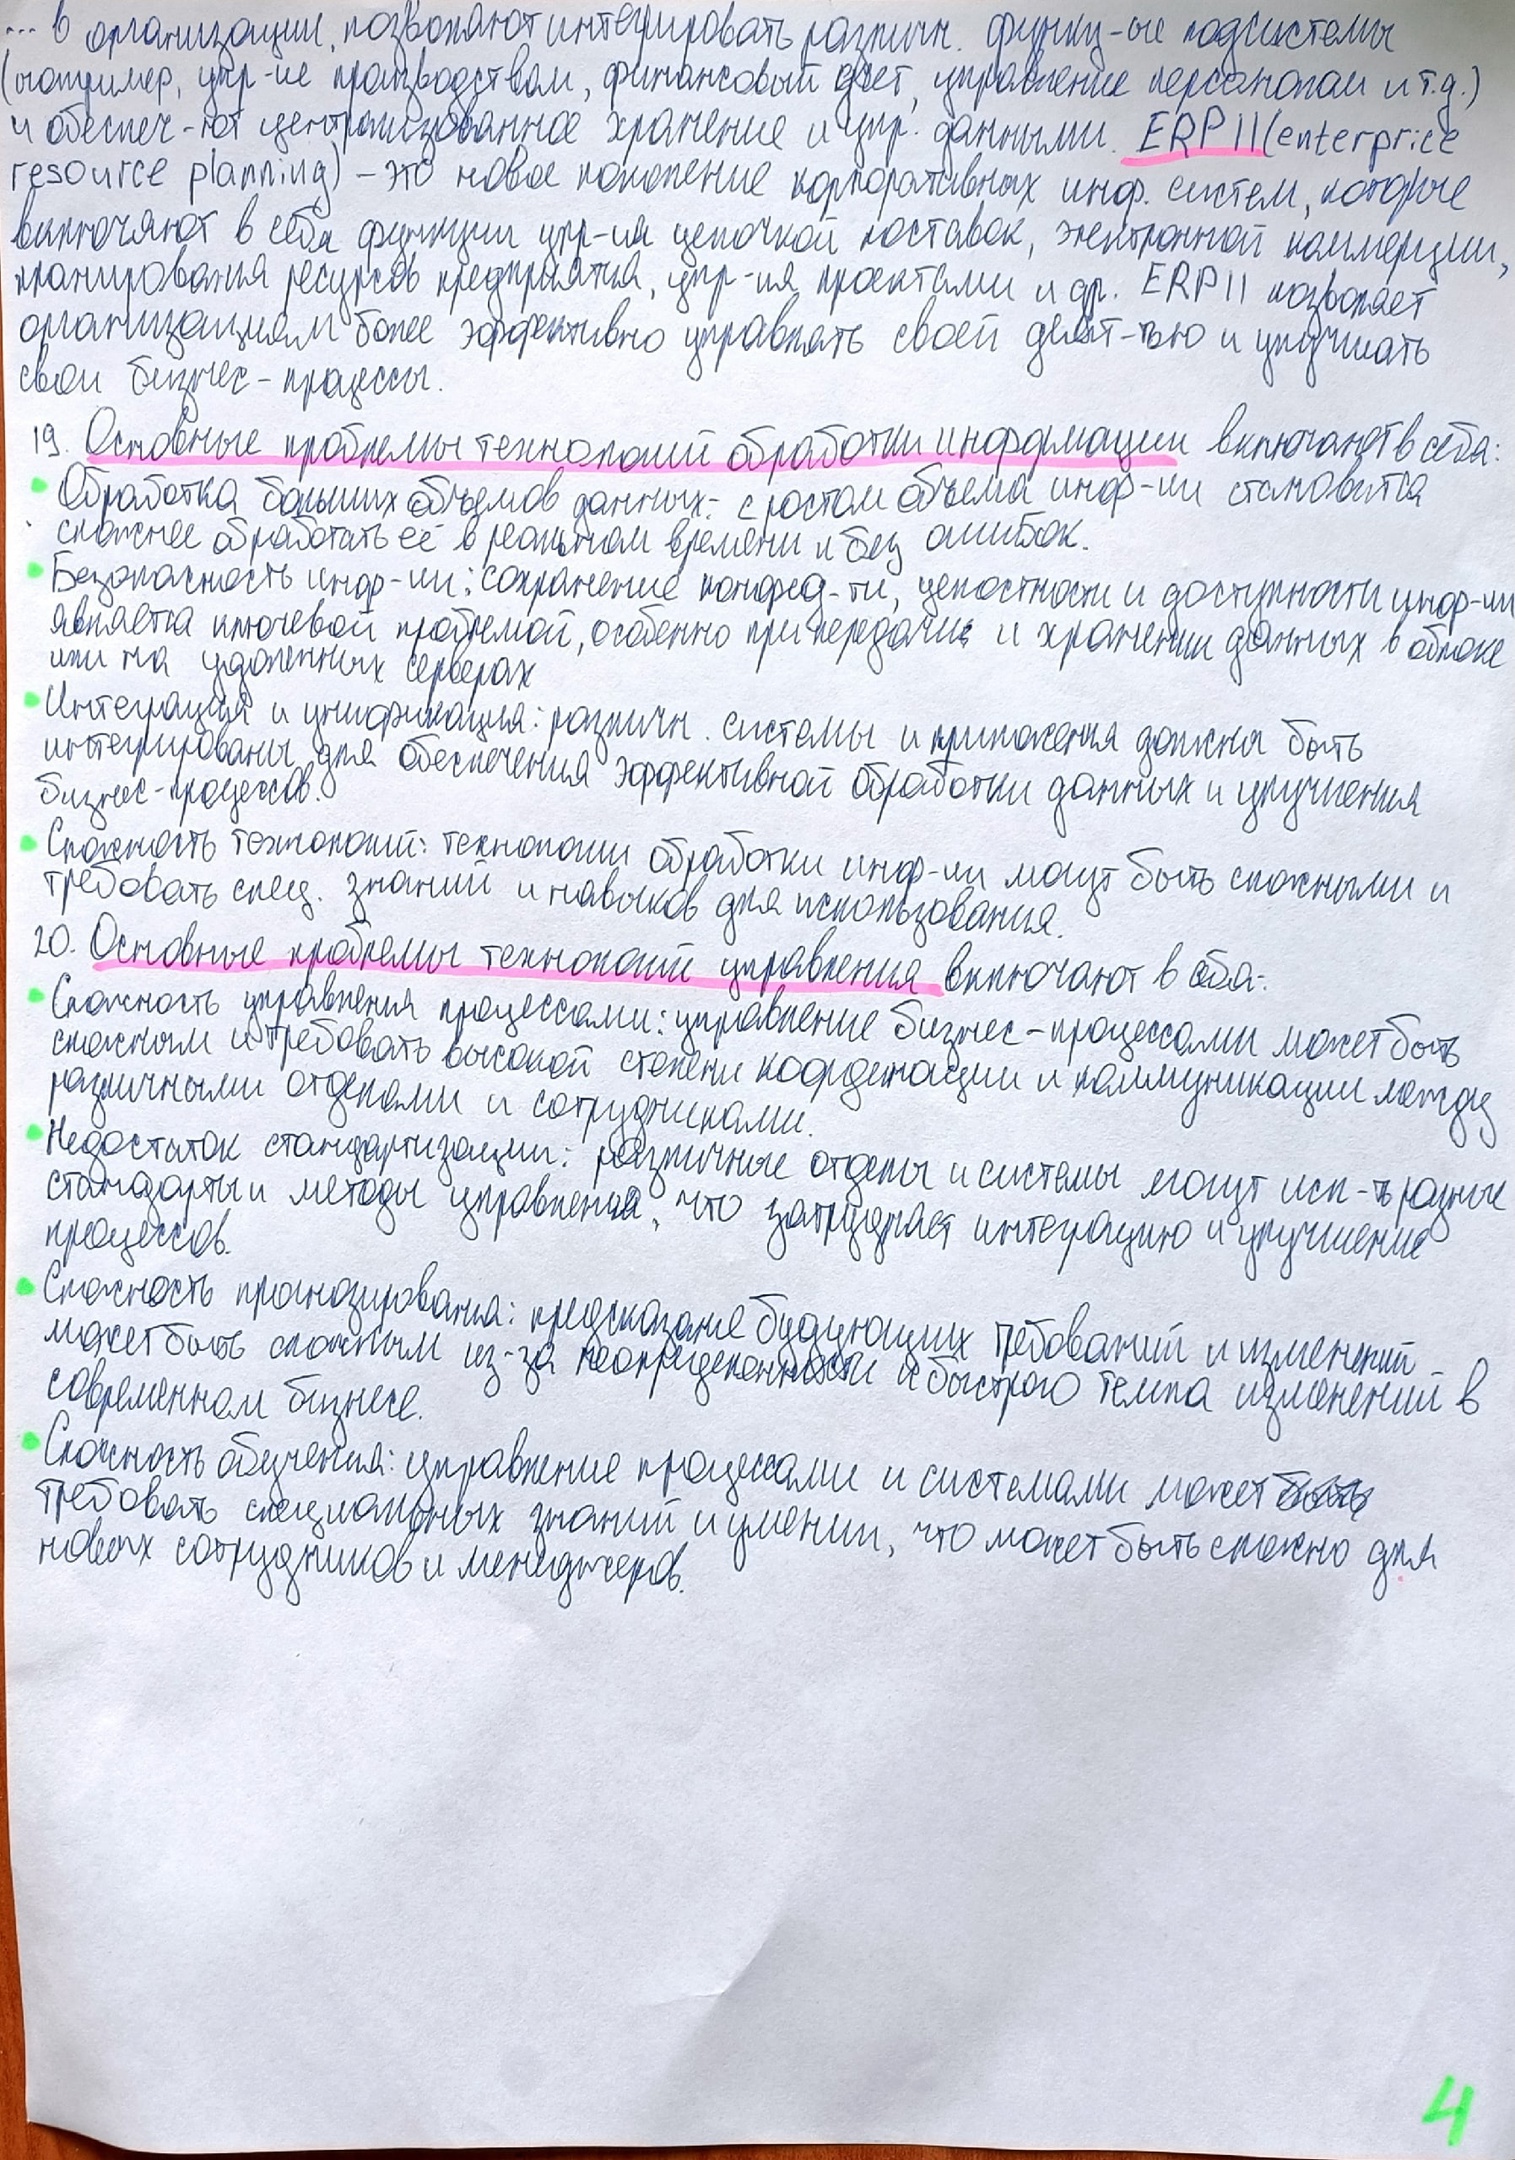 ... в организации, позволяют интегрировать различн. функц-ые подсистемы
(например, упр-ие производством, финансовый учет, управление персоналом и т.д.)
и обеспеч-ют централизованное хранение и упр. данными. ERP II (enterprice
resource planning) – это новое поколение корпоративных инф. систем, которые
включают в себя функции упр-ия цепочкой поставок, электронной коммерции,
планирования ресурсов предприятия, упр-ия проектами и др. ERP II позволяет
организациям более эффективно управлять своей деят-тью и улучшать
свои бизнес-процессы.
19. Основные проблемы технологий обработки информации включают в себя:
• Обработка больших объемов данных: с ростом объема инф-ии становится
сложнее обработать её в реальном времени и без ошибок.
• Безопасность инф-ии: сохранение конфид-ти, целостности и доступности инф-ии
является ключевой проблемой, особенно при передаче и хранении данных в облаке
или на удаленных серверах
• Интеграция и унификация: различн. системы и приложения должны быть
интегрированы для обеспечения эффективной обработки данных и улучшения
бизнес-процессов.
• Сложность технологий: технологии обработки инф-ии могут быть сложными и
требовать спец. знаний и навыков для использования.
20. Основные проблемы технологий управления включают в себя:
• Сложность управления процессами: управление бизнес-процессами может быть
сложным и требовать высокой степени координации и коммуникации между
различными отделами и сотрудниками.
• Недостаток стандартизации: различные отделы и системы могут исп-ть разные
стандарты и методы управления, что затрудняет интеграцию и улучшение
процессов.
• Сложность прогнозирования: предсказание будующих требований и изменений
может быть сложным из-за неопределенности и быстрого темпа изменений в
современном бизнесе.
• Сложность обучения: управление процессами и системами может
требовать специальных знаний и умении, что может быть сложно для
новых сотрудников и менеджеров.
4